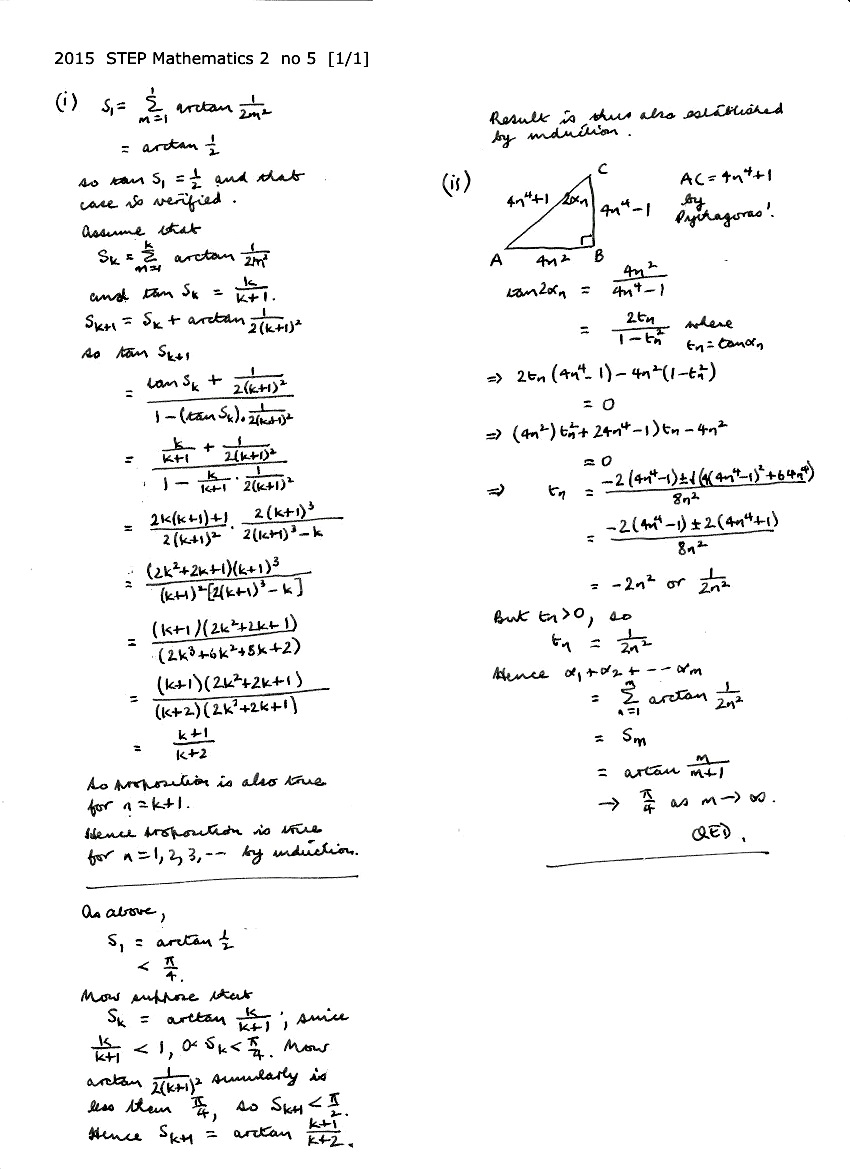 2015 STEP Mathematics 2 no 5 [1/1]
(i) S₁ = Σ_{m=1}^{1} arctan 1/2m²
= arctan 1/2
so tan S₁ = 1/2 and that
case is verified.
Assume that
S_k = Σ_{m=1}^{k} arctan 1/2m²
and tan S_k = k/k+1.
S_{k+1} = S_k + arctan 1/2(k+1)²
so tan S_{k+1}
= (tan S_k + 1/2(k+1)²) / (1 − (tan S_k). 1/2(k+1)²)
= (k/k+1 + 1/2(k+1)²) / (1 − k/k+1 · 1/2(k+1)²)
= (2k(k+1)+1)/2(k+1)² · 2(k+1)³/(2(k+1)³−k)
= (2k²+2k+1)(k+1)³ / (k+1)²[2(k+1)³−k]
= (k+1)(2k²+2k+1) / (2k³+6k²+5k+2)
= (k+1)(2k²+2k+1) / (k+2)(2k²+2k+1)
= k+1 / k+2
So proposition is also true
for n = k+1.
Hence proposition is true
for n = 1, 2, 3, -- by induction.
As above,
S₁ = arctan 1/2
< π/4.
Now suppose that
S_k = arctan k/k+1 ; since
k/k+1 < 1, 0 < S_k < π/4. Now
arctan 1/2(k+1)² similarly is
less than π/4, so S_{k+1} < π/2.
Hence S_{k+1} = arctan k+1/k+2.
Result is thus also established
by induction.
(ii)
C
4n⁴+1
2αn
4n⁴−1
A
4n²
B
AC = 4n⁴+1
by
Pythagoras'.
tan 2αn = 4n² / 4n⁴−1
= 2tn / 1−tn² where
tn = tan αn
⇒ 2tn (4n⁴−1) − 4n²(1−tn²)
= 0
⇒ (4n²) tn² + 2(4n⁴−1) tn − 4n²
= 0
⇒ tn = (−2(4n⁴−1) ± √(4(4n⁴−1)² + 64n⁴)) / 8n²
= (−2(4n⁴−1) ± 2(4n⁴+1)) / 8n²
= −2n² or 1/2n²
But tn > 0, so
tn = 1/2n²
Hence α₁ + α₂ + --- αm
= Σ_{n=1}^{m} arctan 1/2n²
= Sm
= artan m/m+1
→ π/4 as m → ∞.
QED.